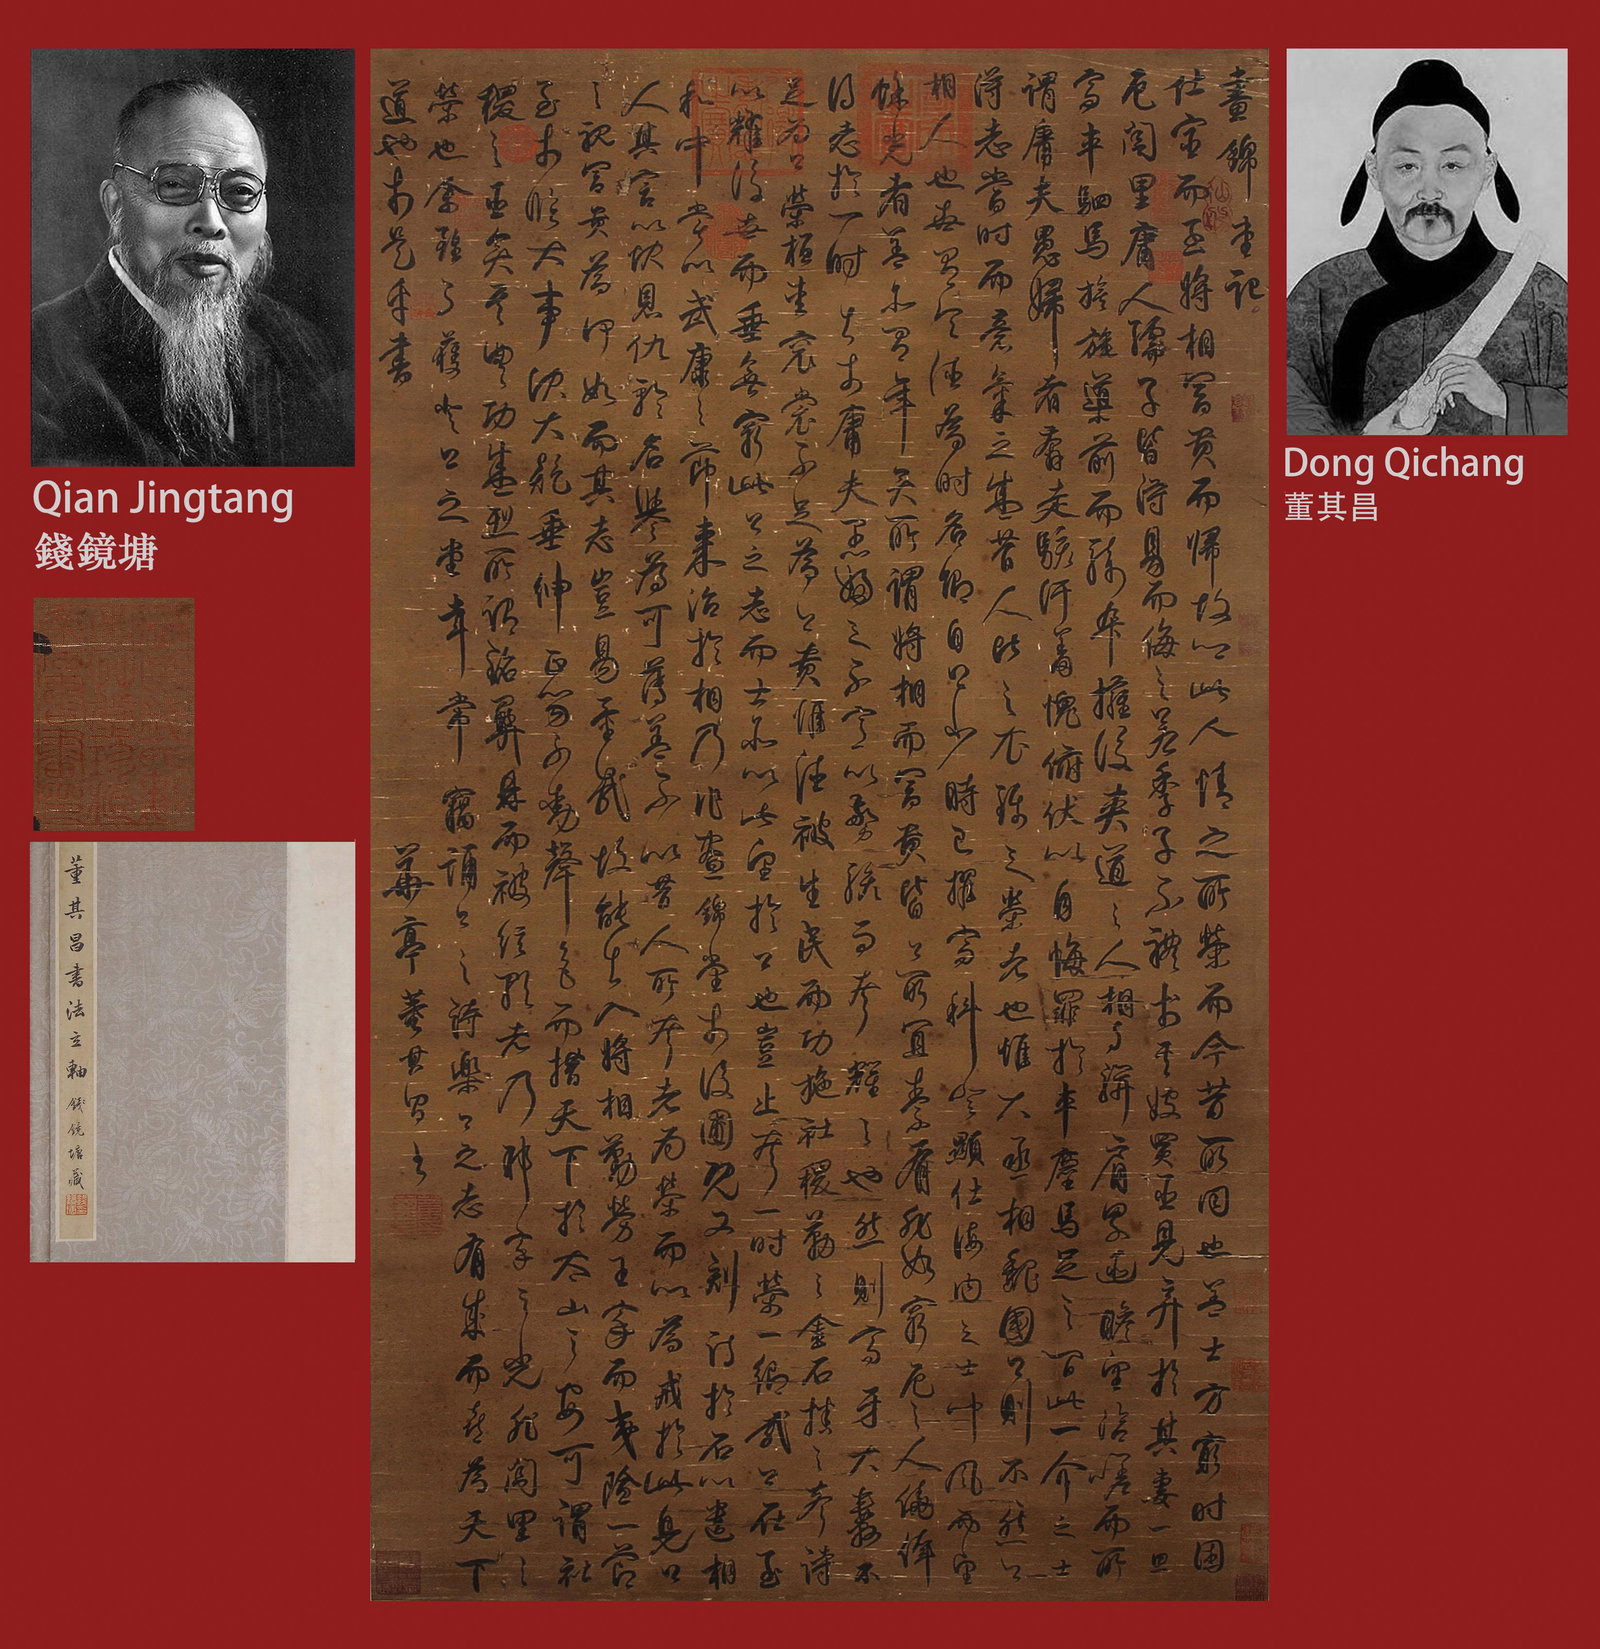 晝錦堂記
仕宦而至將相富貴而歸故鄉此人情之所榮而今昔所同也蓋士方窮时困
厄閭里庸人孺子皆得易而侮之若季子不禮於其嫂買臣見弃於其妻一旦
高車駟馬旗旄導前而騎卒擁後夾道之人相与駢肩累迹瞻望咨嗟而所
謂庸夫愚婦者奔走駭汗羞愧俯伏以自悔罪於車塵馬足之間此一介之士
得志當时而意氣之盛昔人比之衣錦之榮者也惟大丞相魏國公則不然公
相人也世有令德為時名卿自公少時已擢高科登顯仕海内之士聞風而望
餘光者蓋亦有年矣所謂將相而富貴皆公所宜素有非如窮厄之人僥倖
得志於一时出於庸夫愚婦之不意以驚駭而夸耀之也然則高牙大纛不
足為公榮桓圭袞裳不足為公貴惟德被生民而功施社稷勒之金石播之聲詩
以耀後世而垂無窮此公之志而士亦以此望於公也豈止夸一时榮一鄉哉公在至
和中嘗以武康之節來治於相乃作晝錦堂於後圃既又刻詩於石以遺相
人其言以快恩仇矜名譽為可薄蓋不以昔人所夸者為榮而以為戒於此見公
之視富貴為何如而其志豈易量哉故能出入將相勤勞王家而夷險一節
至於臨大事決大議垂紳正笏不動聲色而措天下於太山之安可謂社
稷之臣矣其豐功盛烈所謂銘彝鼎而被絃歌者乃邦家之光非閭里之
榮也余雖不獲登公之堂幸嘗竊誦公之詩樂公之志有成而喜為天下
道也於是乎書 華亭董其昌書
Qian Jingtang
錢鏡塘
董其昌書法立軸 錢鏡塘藏
Dong Qichang
董其昌